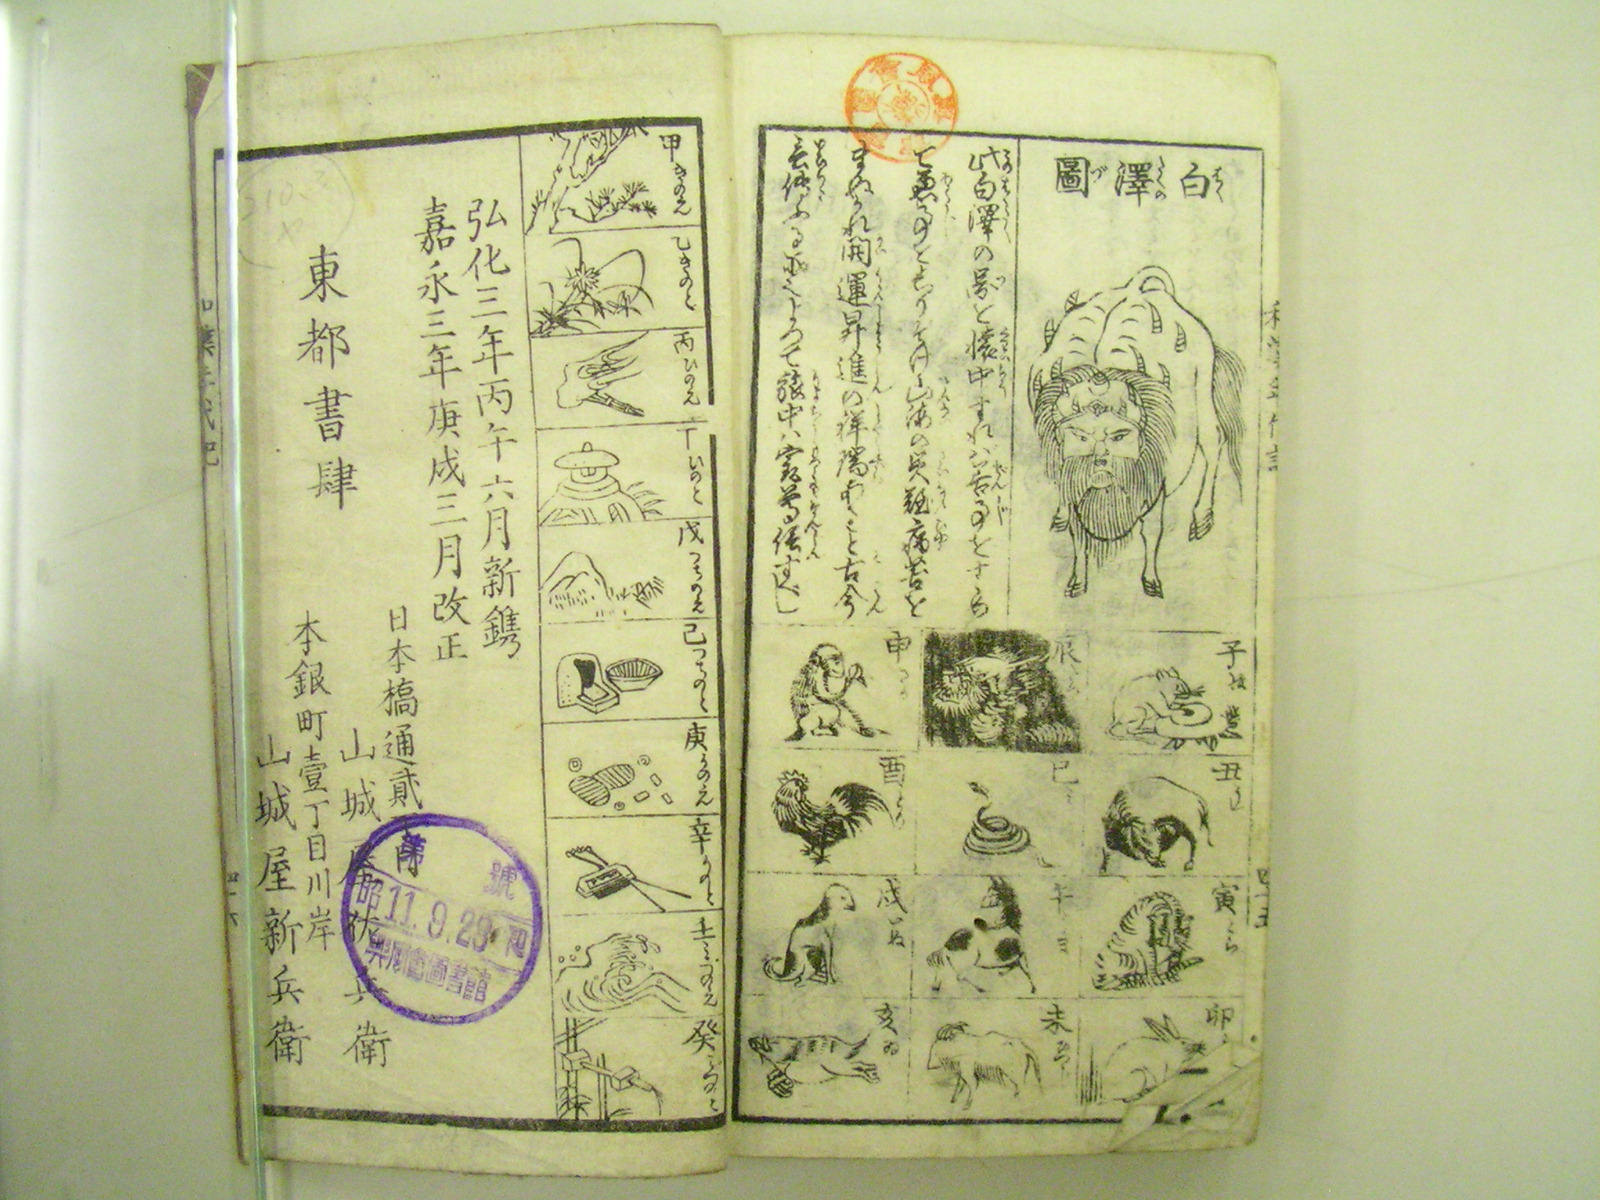 白澤圖
此白澤の圖を懐中すれハ善事をすゝめ
て悪事をしりぞけ山海の災難病苦を
まぬかれ開運昇進の祥瑞あること古今
子ね
丑うし
寅とら
卯う
辰たつ
巳ミ
午うま
未ひつじ
申さる
酉とり
戌いぬ
亥ゐ
甲きのえ
乙きのと
丙ひのえ
丁ひのと
戊つちのえ
己つちのと
庚かのえ
辛かのと
壬ミづのえ
癸ミづのと
弘化三年丙午六月新鐫
嘉永三年庚戌三月改正
日本橋通貳
山城屋佐兵衛
東都書肆
本銀町壹丁目川岸
山城屋新兵衛
第 號
昭11.9.29
興風會圖書館
四十五